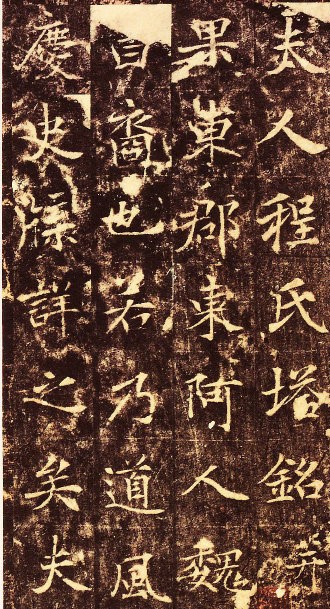 夫人程氏塔銘并
果東郡東阿人魏
裔也若乃道風
慶史牒詳之矣夫